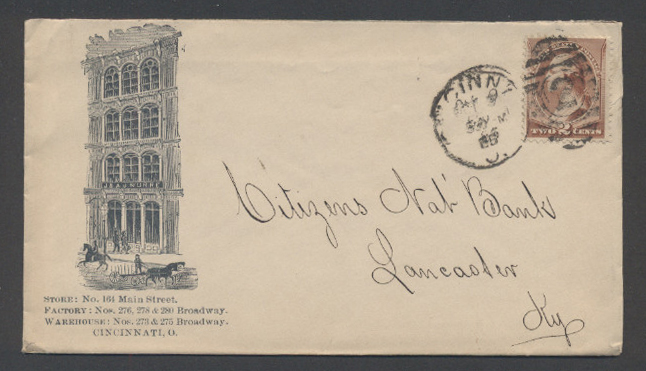 J. & A. NURRE
STORE: No. 164 Main Street.
FACTORY: Nos. 276, 278 & 280 Broadway.
WAREHOUSE: Nos. 273 & 275 Broadway.
CINCINNATI, O.
CINN
O.
TWO 2 CENTS
Citizens Nat' Bank
Lancaster
Ky